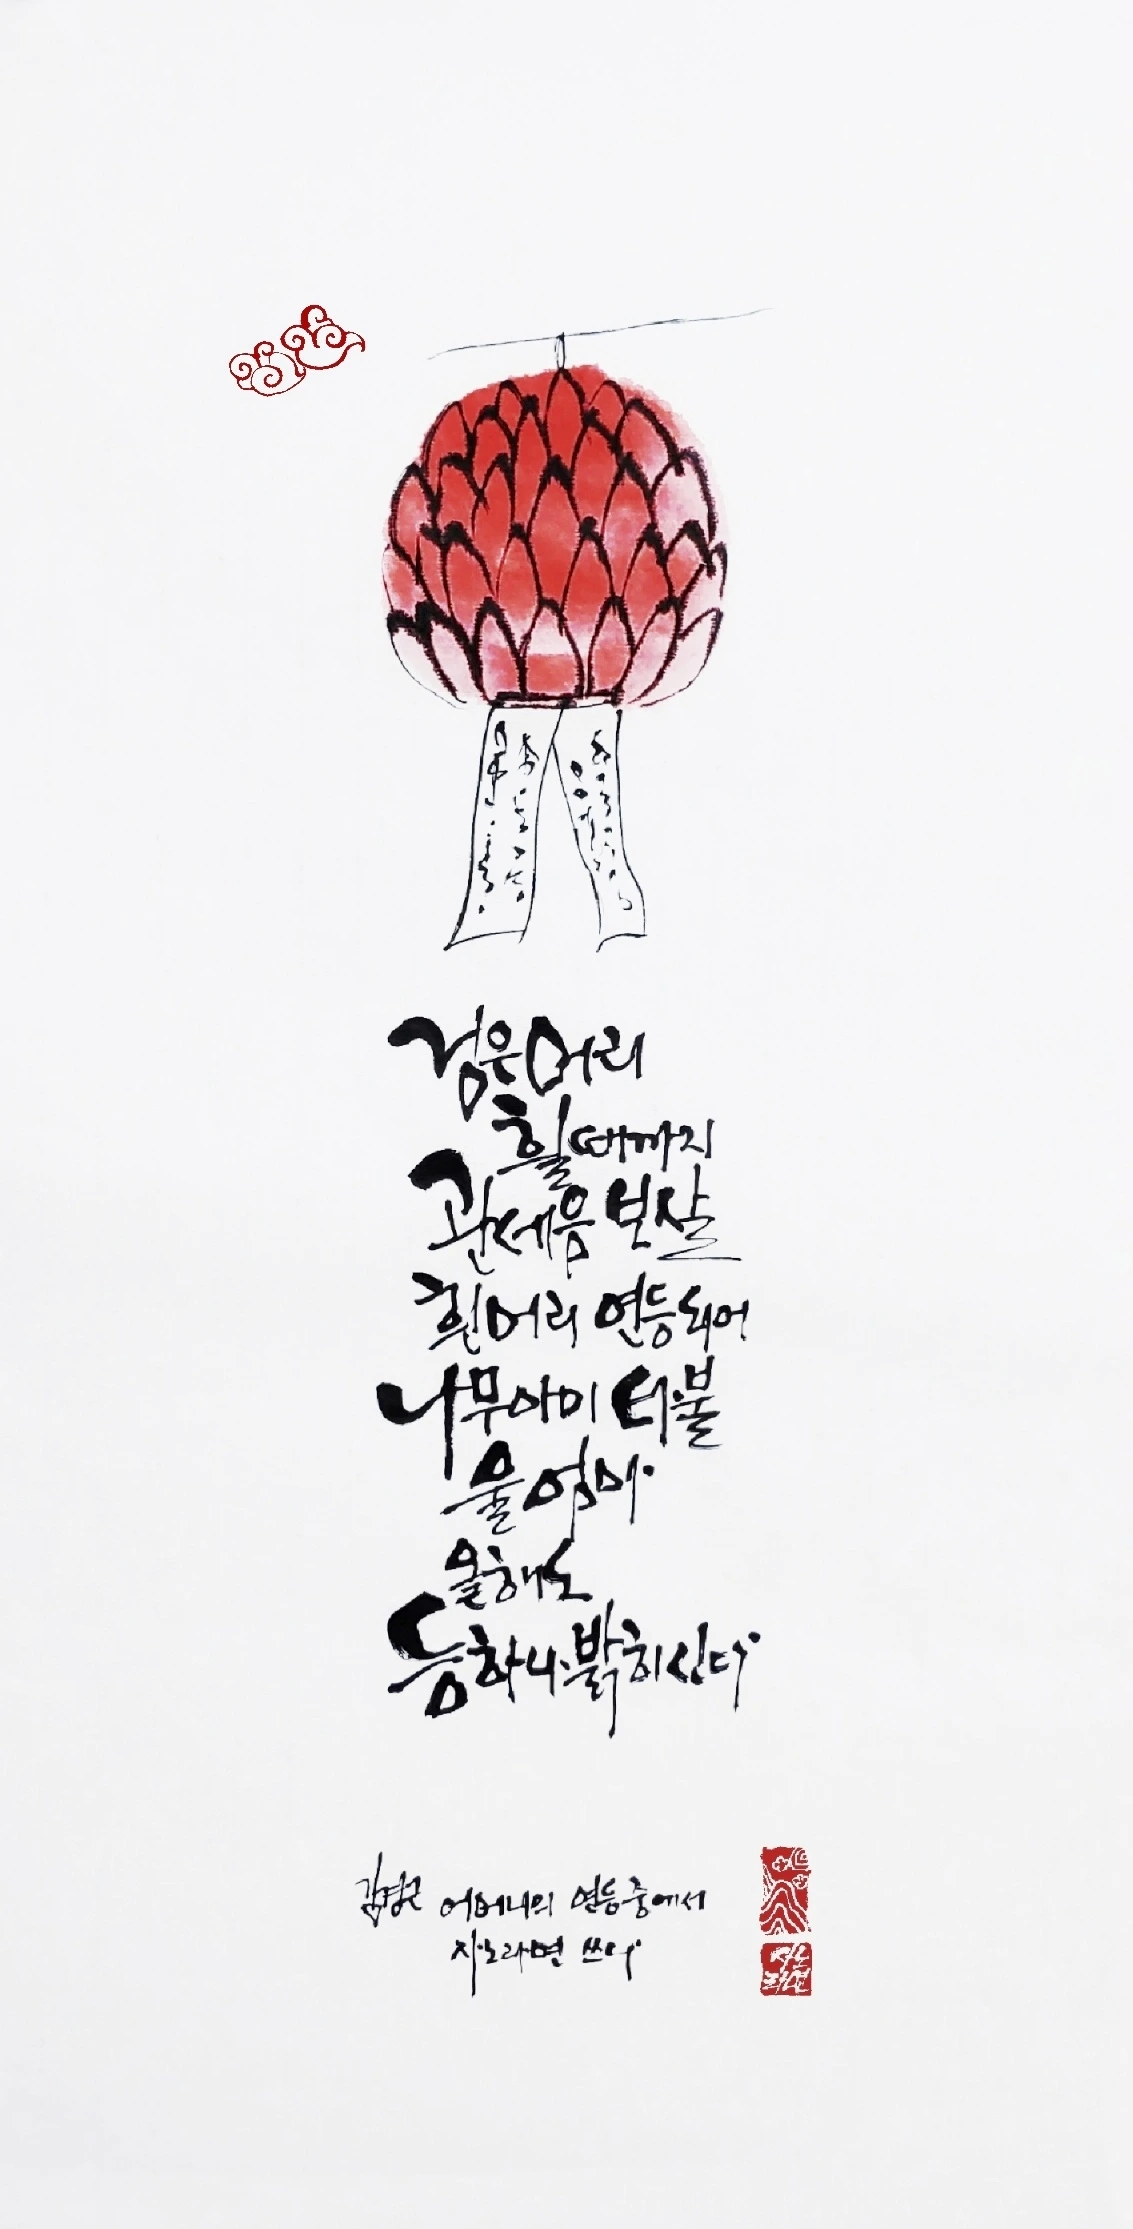 검은머리
흴때까지
관세음 보살
흰머리 연등되어
나무아미 타불
울엄마
올해도
등하나 밝히신다
김경근 어머니의 연등중에서
지노라면 쓰다